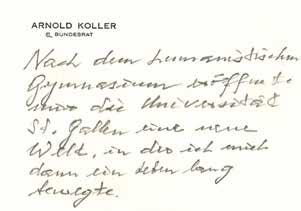 ARNOLD KOLLER
BUNDESRAT
Nach dem humanistischen
Gymnasium eröffnete
mir die Universität
St. Gallen eine neue
Welt, in der ich mich
dann ein Leben lang
bewegte.